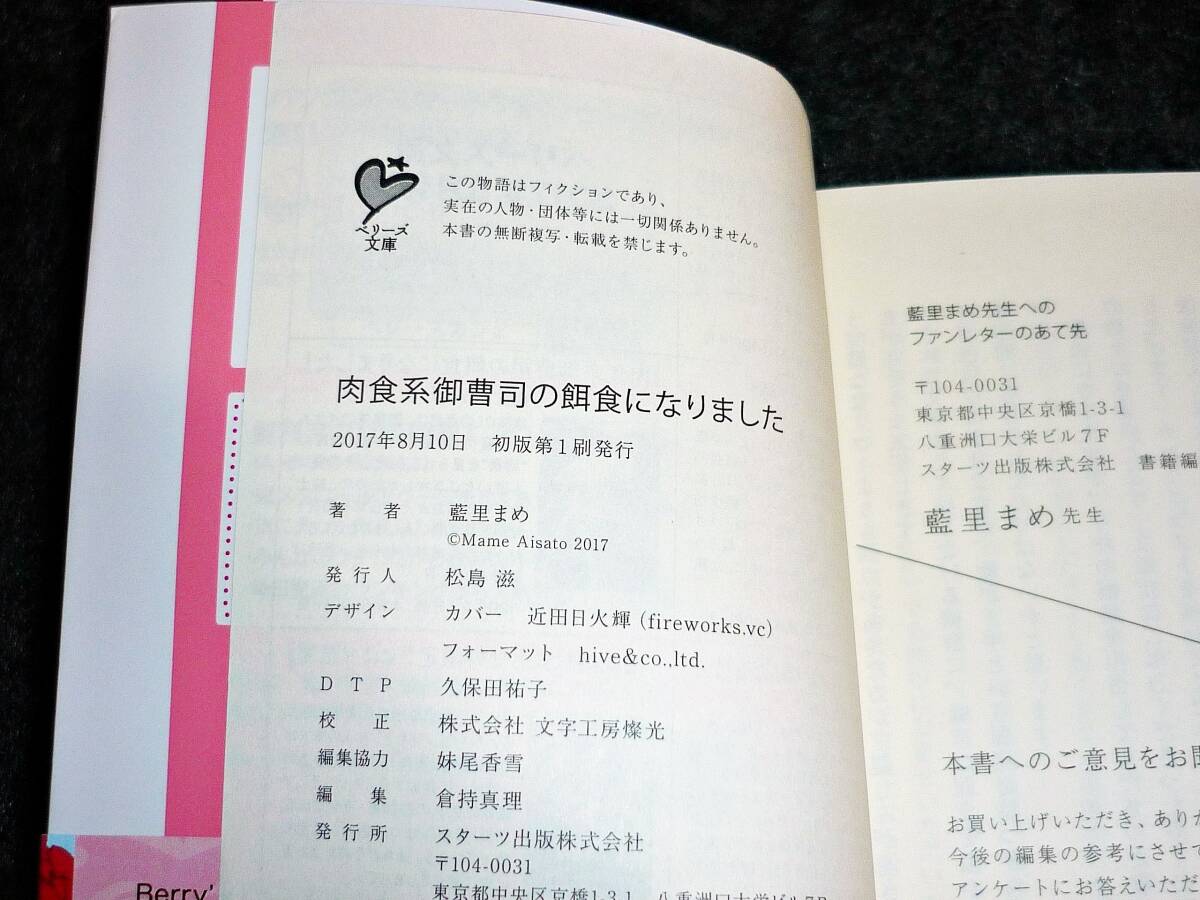 ベリーズ
文庫
この物語はフィクションであり、
実在の人物・団体等には一切関係ありません。
本書の無断複写・転載を禁じます。
肉食系御曹司の餌食になりました
2017年8月10日 初版第1刷発行
著 者 藍里まめ
©Mame Aisato 2017
発行人 松島 滋
デザイン カバー 近田日火輝 (fireworks.vc)
フォーマット hive&co.,ltd.
DTP 久保田祐子
校 正 株式会社 文字工房燦光
編集協力 妹尾香雪
編 集 倉持真理
発行所 スターツ出版株式会社
〒104-0031
東京都中央区京橋1-3-1 八重洲口大栄ビル7F
Berry'
藍里まめ先生への
ファンレターのあて先
〒104-0031
東京都中央区京橋1-3-1
八重洲口大栄ビル7F
スターツ出版株式会社 書籍編
藍里まめ先生
本書へのご意見をお聞
お買い上げいただき、ありが
今後の編集の参考にさせて
アンケートにお答えいただ